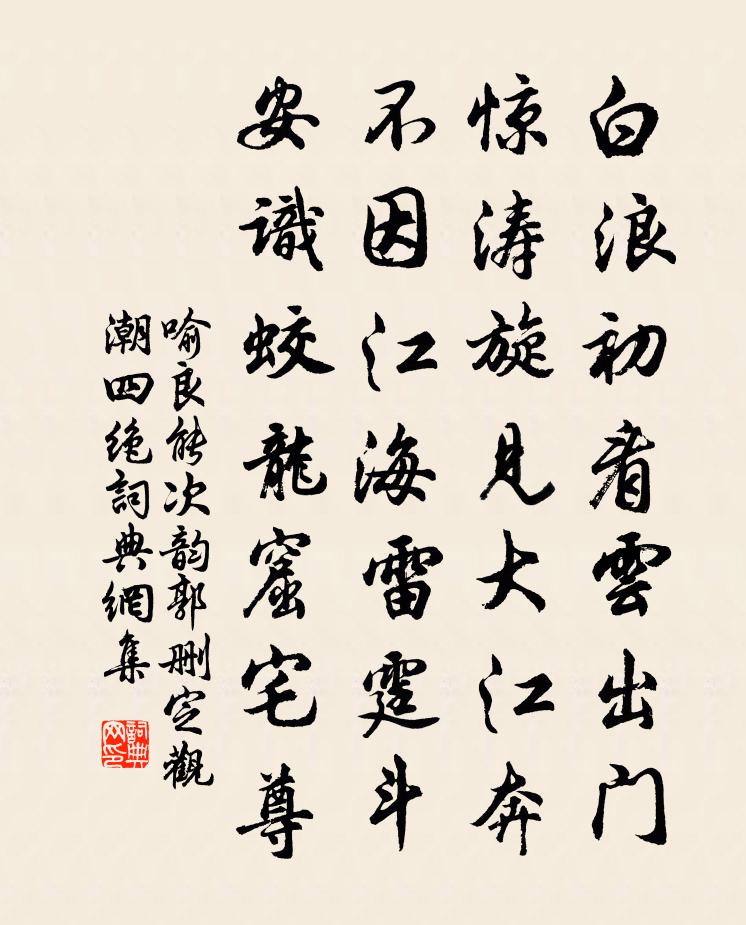 白浪初看雲出門
惊涛旋見大江奔
不因江海雷霆斗
安識蛟龍窟宅尊
喻良能次韵郭删定觀
潮四绝詞典網集
詞典网印